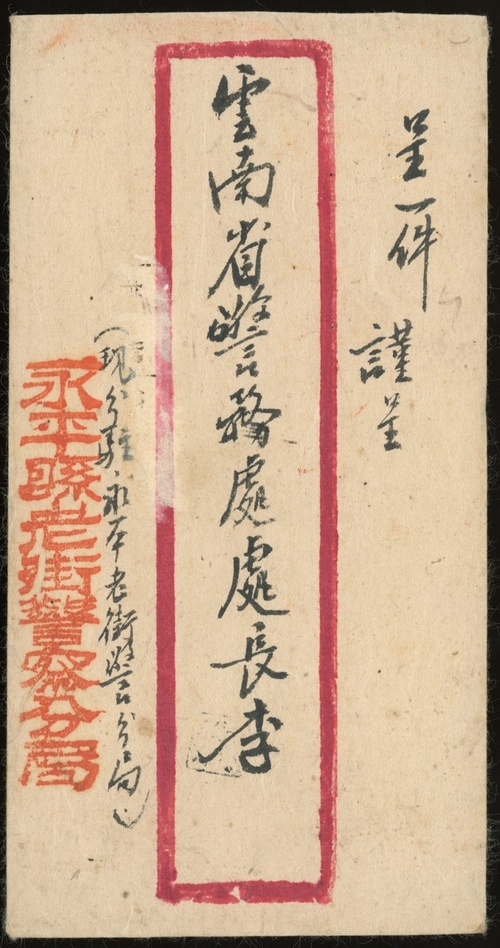 呈一件
謹呈
雲南省警務處處長李
(現分駐永平老街警分局)
永平縣老街警察分局